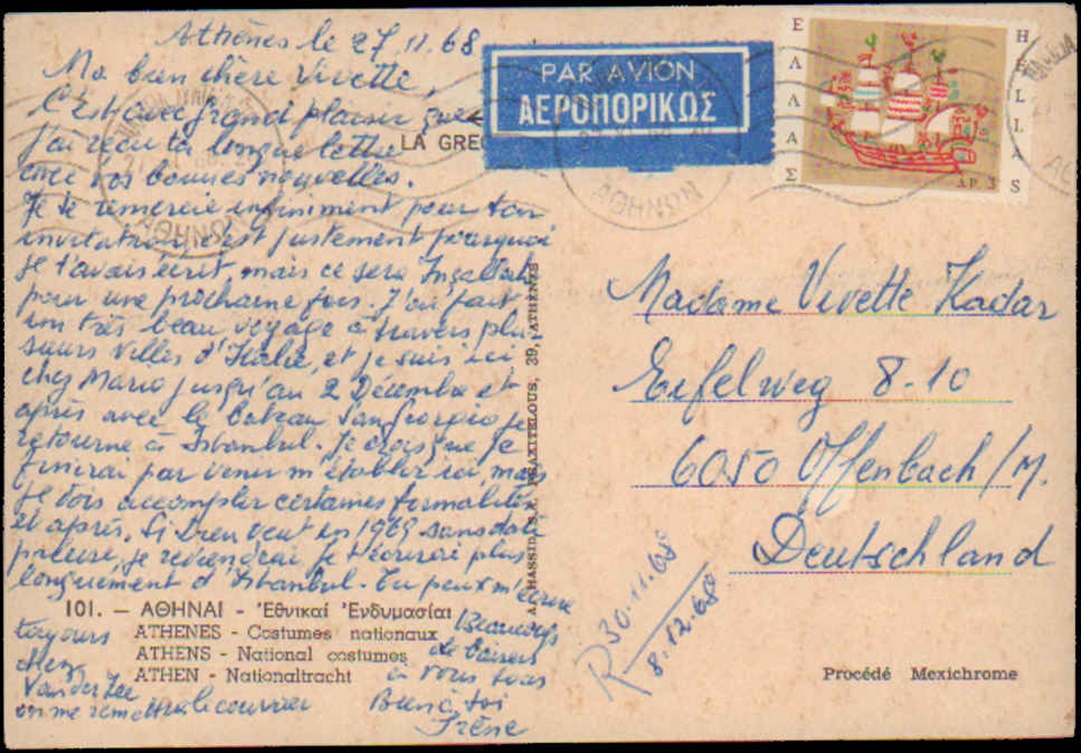 Athènes le 27.11.68
Ma bien chère Vivette,
C'est avec grand plaisir que
j'ai reçu ta longue lettre
avec vos bonnes nouvelles.
Je te remercie infiniment pour ton
invitation, c'est justement pourquoi
je t'avais écrit, mais ce sera Inçallah
pour une prochaine fois. J'ai fait
un très beau voyage à travers plu-
sieurs villes d'Italie, et je suis ici
chez Mario jusqu'au 2 Décembre et
après avec le bateau San Giorgio je
retourne à Istanbul. Je crois que je
finirai par venir m'établir ici, mais
je dois accomplir certaines formalités
et après, Si Dieu veut en 1969 sans date
précise, je reviendrai. Je t'écrirai plus
longuement d'Istanbul. Tu peux m'écrire
toujours
chez
Van der Zee
on me remettra le courrier
Beaucoup
de baisers
à vous tous
Bien à toi
Irène
LA GREC
PAR AVION
ΑΕΡΟΠΟΡΙΚΩΣ
ΕΛΛΑΣ
HELLAS
ΔΡ. 3
ΑΘΗΝΩΝ
ΑΘΗΝΩΝ
Madame Vivette Kadar
Eifelweg 8-10
6050 Offenbach/M.
Deutschland
R 30.11.68
8.12.68
39, ATHÈNES
101. — ΑΘΗΝΑΙ - Ἐθνικαί Ἐνδυμασίαι
ATHENES - Costumes nationaux
ATHENS - National costumes
ATHEN - Nationaltracht
Procédé Mexichrome